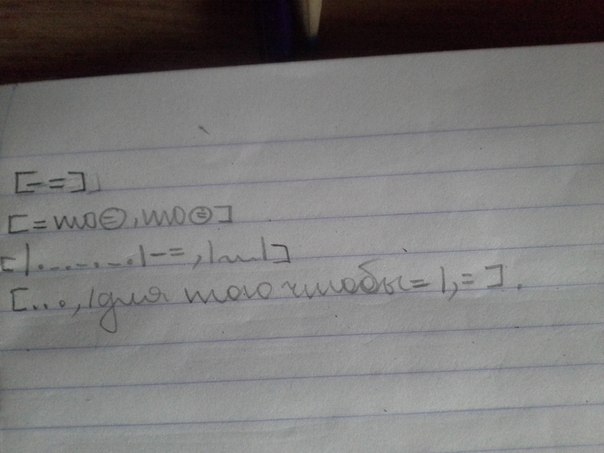 [-=]
[=то⊖, то⊜]
[|.......|-=, |...|]
[..., |для того чтобы=|, =].